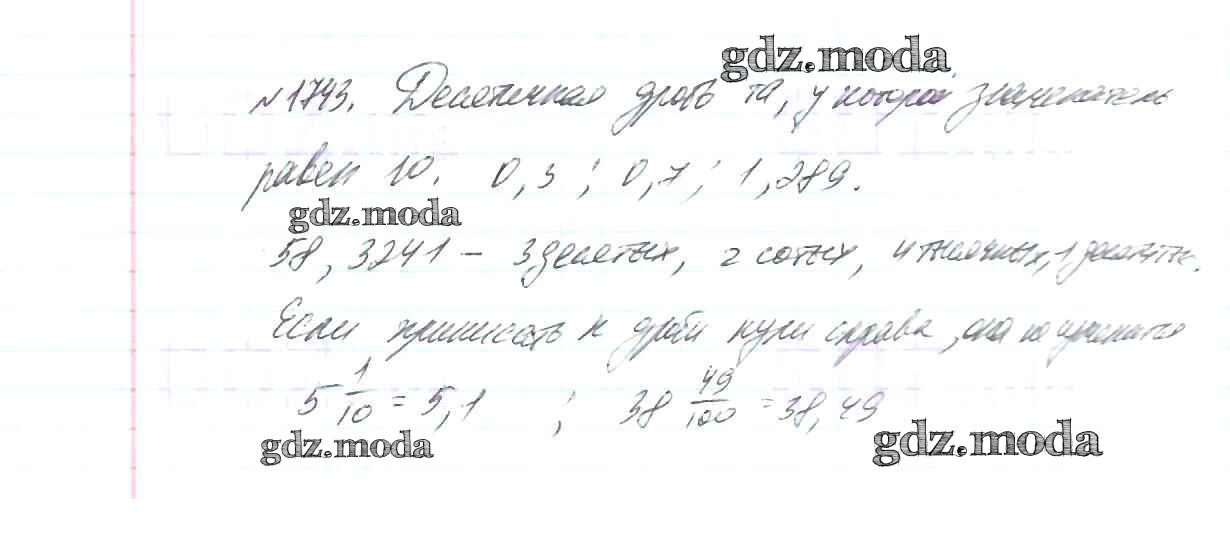 gdz.moda
№1743. Десятичная дробь та, у которой знаменатель
равен 10. 0,3; 0,7; 1,289.
gdz.moda
58,3241 – 3 десятых, 2 сотых, 4 тысячных, 1 десятит.
Если приписать к дроби нули справа, она не изменится
5 1/10 = 5,1 ; 38 49/100 = 38,49
gdz.moda gdz.moda